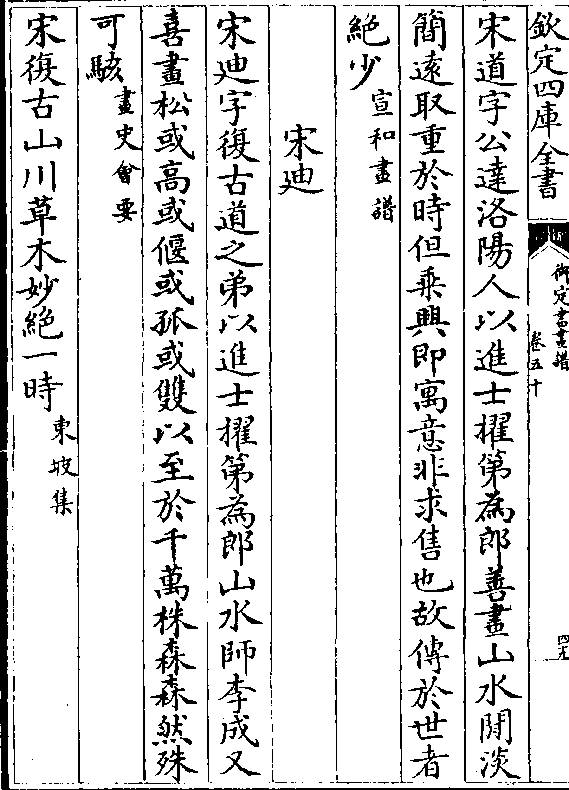 欽定四庫全書
御定書畫譜
卷五十
四九
宋道字公達洛陽人以進士擢第為郎善畫山水閒淡
簡遠取重於時但乗興即寓意非求售也故傳於世者
絶少宣和畫譜
宋迪
宋迪字復古道之弟以進士擢第為郎山水師李成又
喜畫松或高或偃或孤或雙以至於千萬株森森然殊
可駭畫史會要
宋復古山川草木妙絶一時東坡集